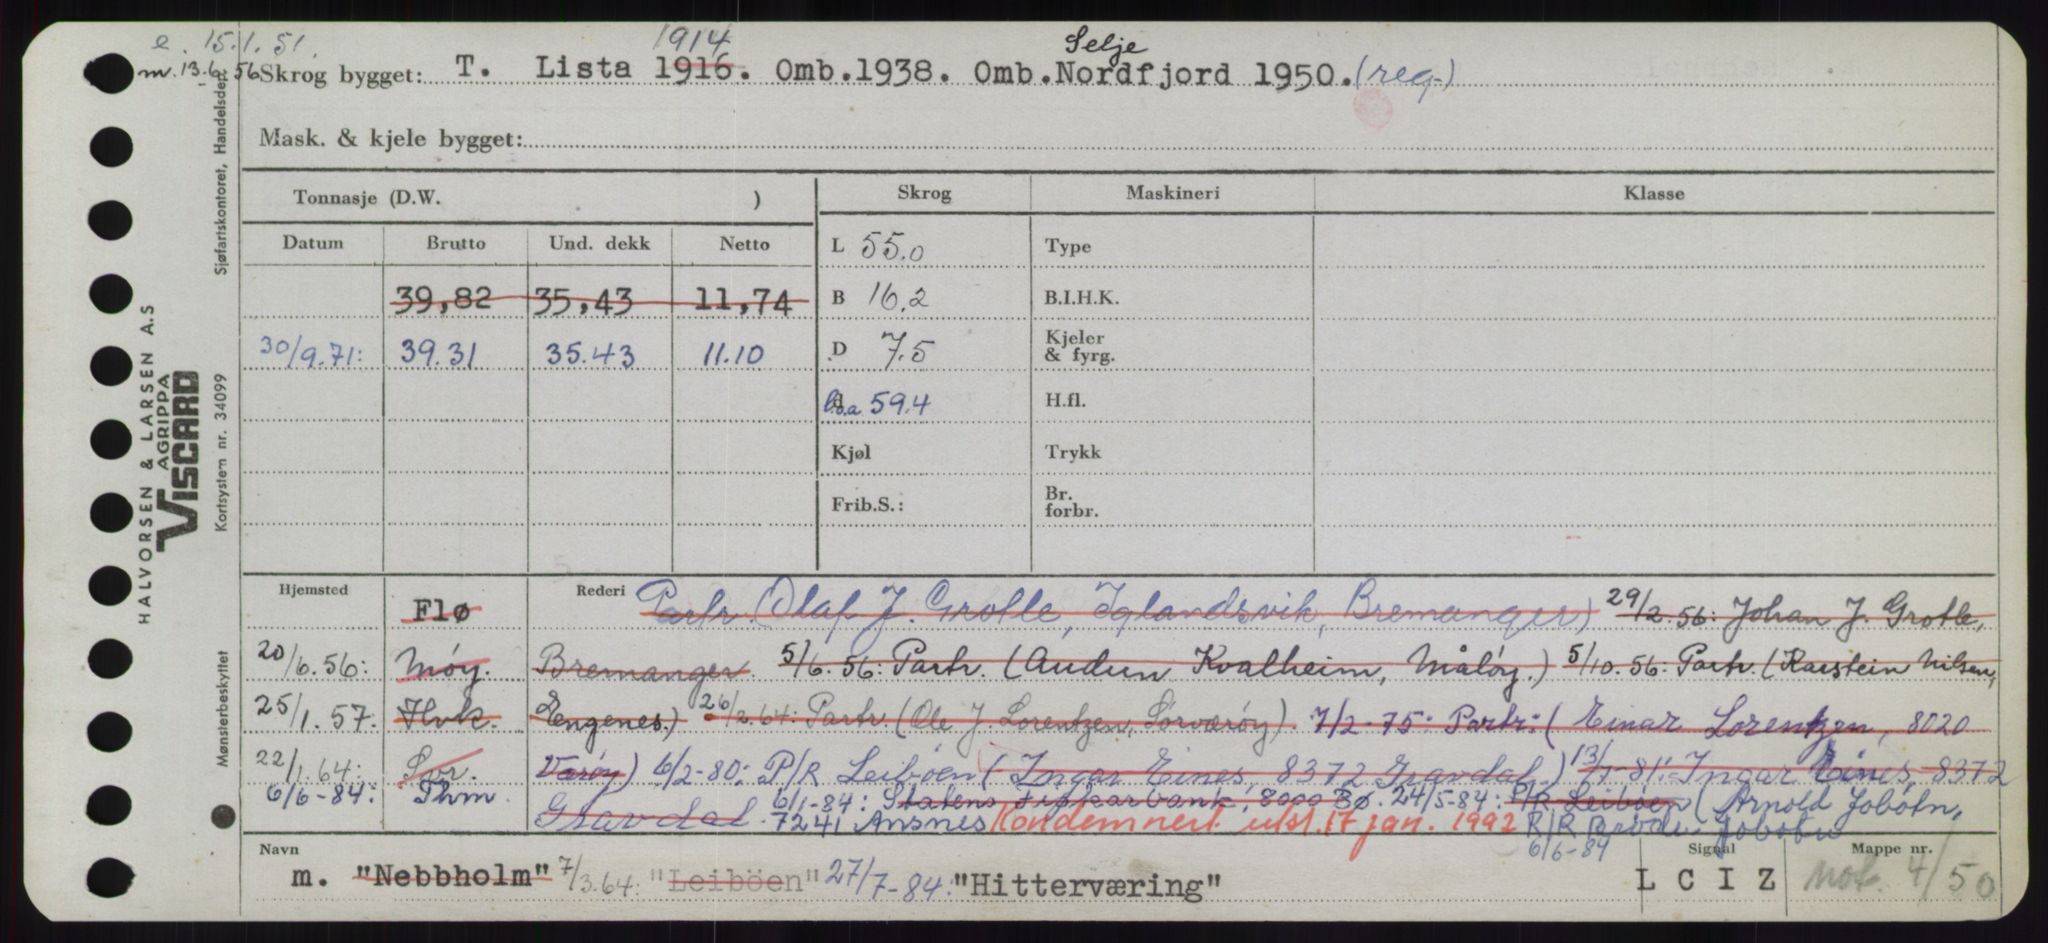 e. 15.1.51.
m. 13.6.56
1914
Selje
Skrog bygget: T. Lista 1916. Omb.1938. Omb.Nordfjord 1950. (reg.)
Mask. & kjele bygget:
Tonnasje (D.W. )
Skrog
Maskineri
Klasse
Datum
Brutto
Und. dekk
Netto
L 55.0
Type
39,82 35,43 11,74
B 16.2
B.I.H.K.
30/9.71: 39.31 35.43 11.10
D 7.5
Kjeler & fyrg.
l.o.a 59.4
H.fl.
Kjøl
Trykk
Frib.S.:
Br. forbr.
Hjemsted Flø
Rederi Partr. (Olaf J. Grotle, Iglandsvik, Bremanger) 29/2.56: Johan J. Grotle,
20/6.56: Måøy. Bremanger 5/6.56: Partr. (Audun Kvalheim, Måløy.) 5/10.56: Partr. (Karstein Nilsen,
25/1.57: Hvk. Engenes.) 26/2.64: Partr. (Ole J. Lorentzen, Sørværøy). 7/2-75: Partr: (Einar Lorentzen, 8020
22/1.64: Sør. Værøy) 6/2-80: P/R Leibøen (Ingar Eines, 8372 Gravdal.) 13/7-81: Ingar Eines, 8372
6/6-84: Thm. Gravdal. 6/1-84: Statens Fiskarbank, 8000 Bø. 24/5-84: P/R Leibøen (Arnold Jobotn,
7241 Ansnes Kondemnert utst. 17 jan. 1992 P/R Brødr. Jobotn
6/6-84
Navn
m. "Nebbholm" 7/3.64: "Leiböen" 27/7-84: "Hitterværing"
Signal
L C I Z
Mappe nr.
not. 4/50
HALVORSEN & LARSEN A.S
AGRIPPA
VISCARD
Sjøfartskontoret, Handelsdep.
Kortsystem nr. 34099
Mønsterbeskyttet